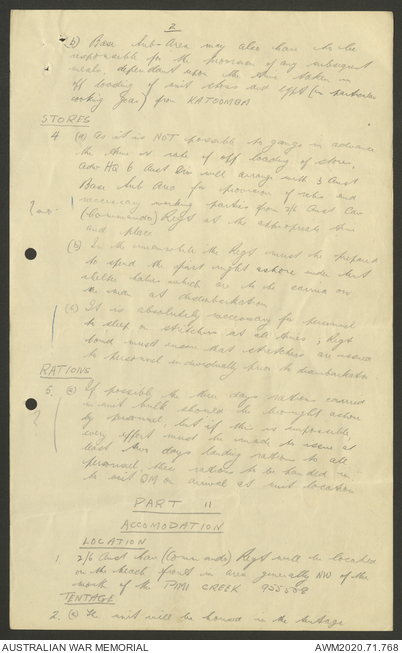 2
(b) Base Sub-Area may also have to be
responsible for the provision of any subsequent
meals, dependant upon the time taken in
off loading of unit stores and eqpt (in particular
cooking gear) from KATOOMBA
STORES
4 (a) As it is NOT possible to gauge in advance
the time or rate of off loading of stores,
Adv HQ 6 Aust Div will arrange with 3 Aust
Base Sub Area for provision of and
necessary working parties from 2/6 Aust Cav
(Commando) Regt at the appropriate time
and place
(b) In the meanwhile the Regt must be prepared
to spend the first night ashore under tent
shelter which are to be carried on
the man at disembarkation
(c) It is absolutely necessary for personnel
to sleep on stretchers at all times, Regt
must ensure that stretchers are issued
to personnel individually prior to disembarkation
RATIONS
5. (a) If possible the two days rations carried
in unit bulk should be brought ashore
by personnel, but if this is impossible
every effort must be made to issue at
least two days landing rations to all
personnel, these rations to be handed in
to unit QM on arrival at unit location
PART II
ACCOMODATION
LOCATION
1 2/6 Aust Cav (Commando) Regt will be located
on the beach front in area generally NW of the
mouth of the PIMI CREEK 955558
TENTAGE
2 (a) The unit will be housed in the tentage
AUSTRALIAN WAR MEMORIAL
AWM2020.71.768